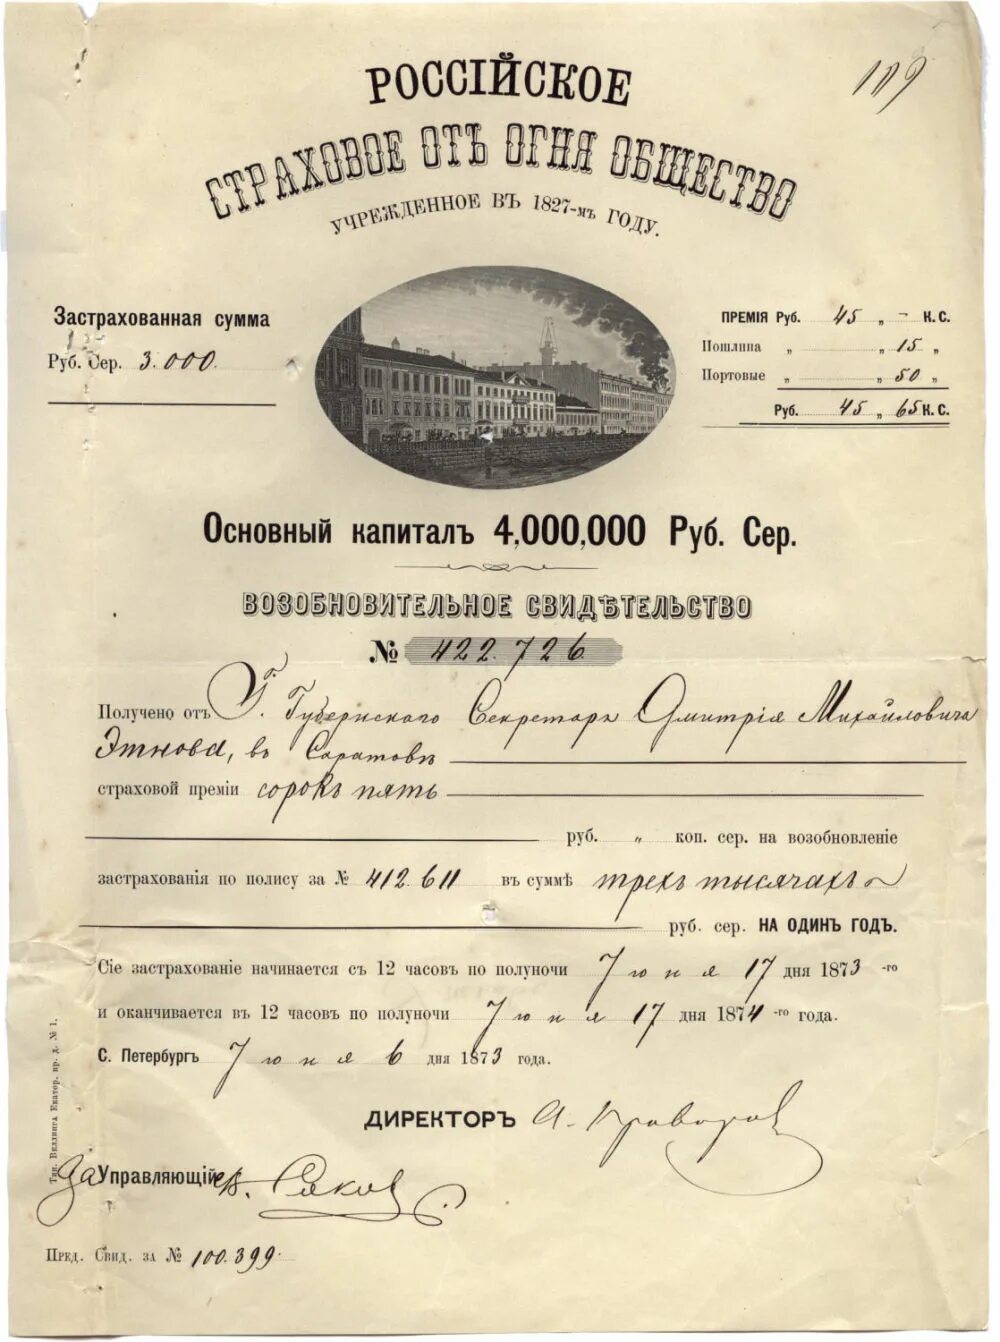 109
РОССІЙСКОЕ
СТРАХОВОЕ ОТЪ ОГНЯ ОБЩЕСТВО
УЧРЕЖДЕННОЕ ВЪ 1827-мъ ГОДУ.
Застрахованная сумма
Руб. Сер. 3.000.
ПРЕМІЯ Руб. 45 „ - К. С.
Пошлина „ „ 15 „
Портовые „ „ 50 „
Руб. 45 „ 65 К. С.
Основный капиталъ 4,000,000 Руб. Сер.
ВОЗОБНОВИТЕЛЬНОЕ СВИДѢТЕЛЬСТВО
№ 422.726
Получено отъ Г. Губернского Секретаря Дмитрія Михайловича
Этнова, въ Саратовѣ
страховой преміи сорокъ пять
руб. „ коп. сер. на возобновленіе
застрахованія по полису за № 412.611 въ суммѣ трехъ тысячахъ
руб. сер. НА ОДИНЪ ГОДЪ.
Сіе застрахованіе начинается съ 12 часовъ по полуночи Іюня 17 дня 1873 -го
и оканчивается въ 12 часовъ по полуночи Іюня 17 дня 1874 -го года.
С. Петербургъ Іюня 6 дня 1873 года.
ДИРЕКТОРЪ А.
За Управляющій
Пред. Свид. за № 100.399.
Тип. Виллинга Екатер. пр. д. № 1.